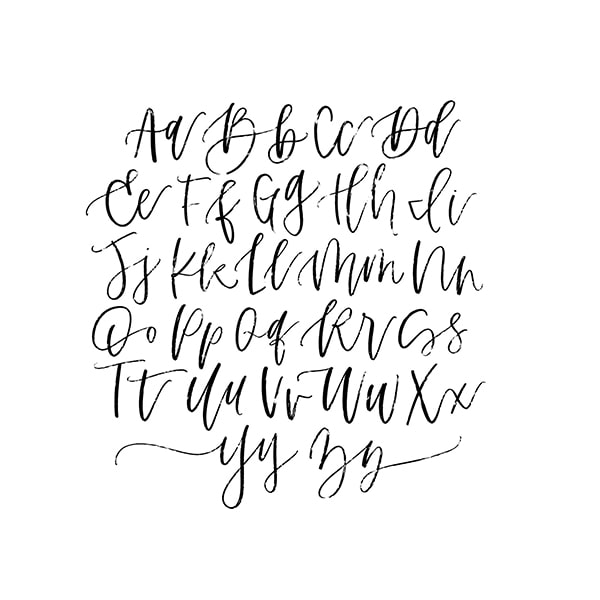 Aa Bb Cc Dd
Ee Ff Gg Hh Ii
Jj Kk Ll Mm Nn
Oo Pp Qq Rr Ss
Tt Uu Vv Ww Xx
Yy Zz